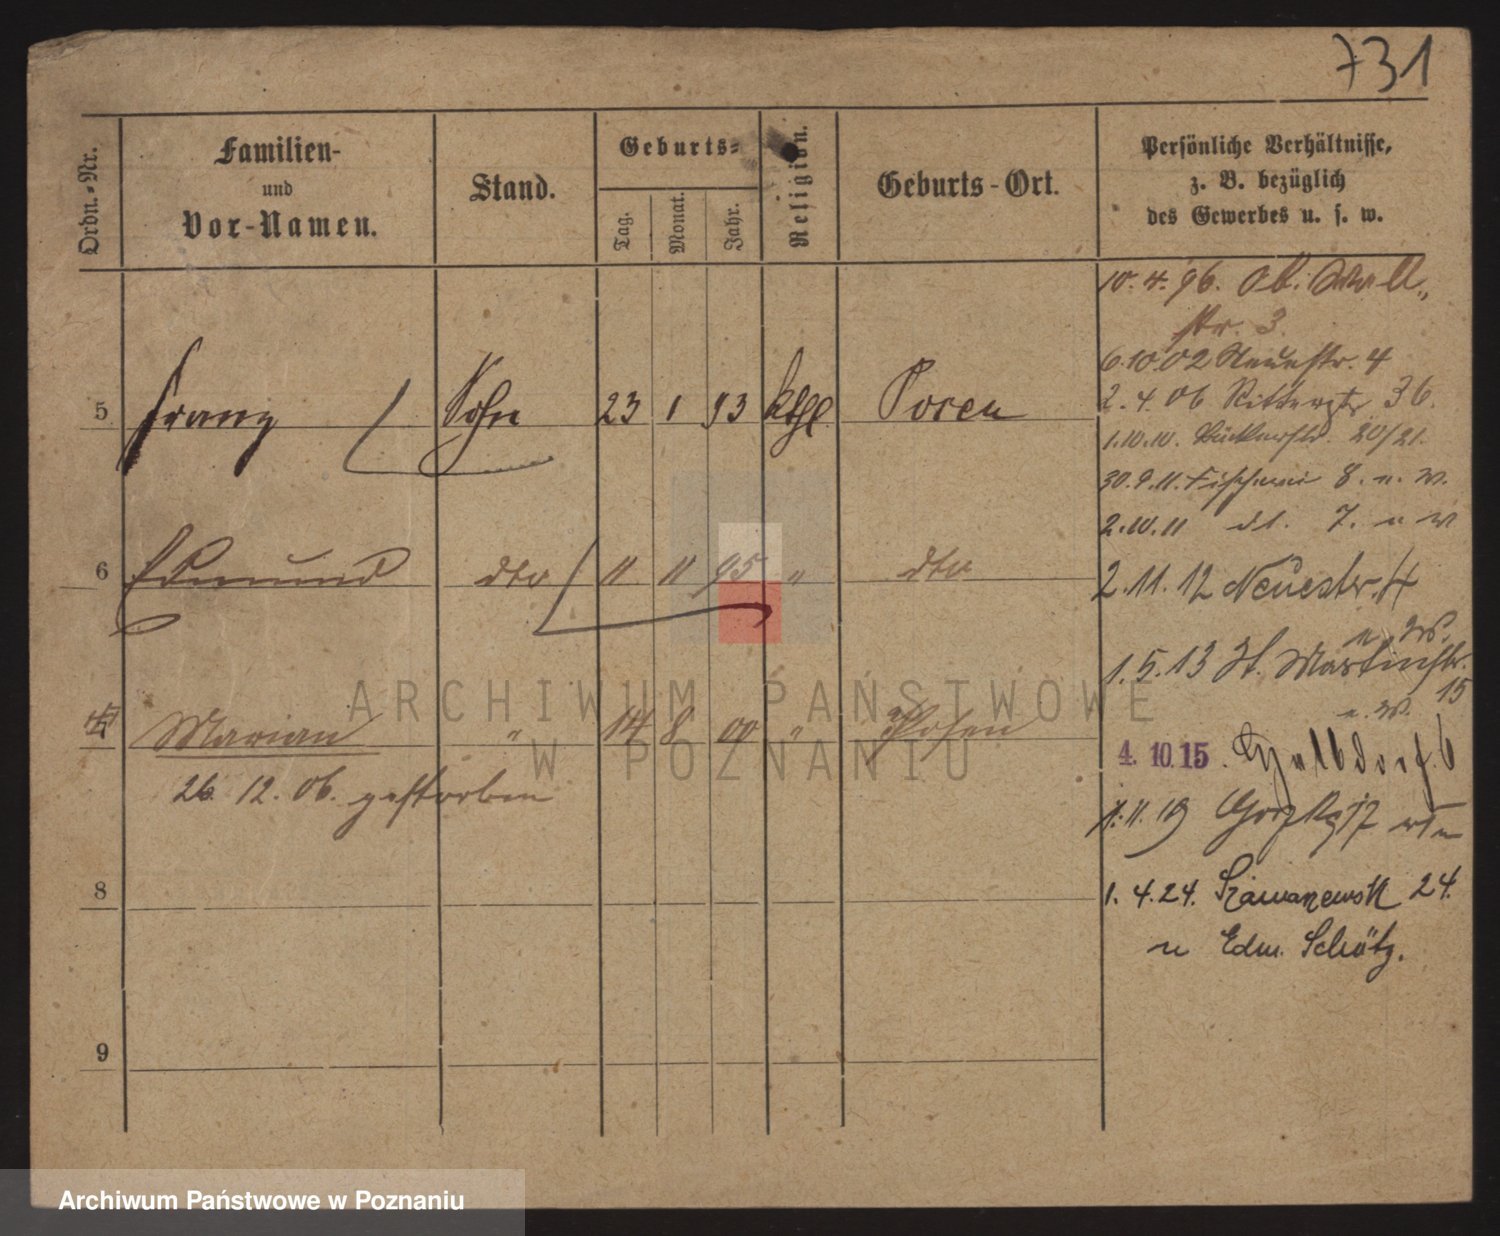 731
Ordn.-Nr.
Familien-
und
Vor-Namen.
Stand.
Geburts-
Tag.
Monat.
Jahr.
Religion.
Geburts-Ort.
Persönliche Verhältnisse,
z. B. bezüglich
des Gewerbes u. s. w.
10. 4. 96. Ob. Wall-
str. 3.
6.10.02 Neuestr. 4
2. 4. 06 Ritterstr. 36.
5 Franz Sohn 23 1 93 kthl Posen
1.10.10. 20/21.
30.9.11. Fischerei 8. n. W.
2.10.11 dt. 7. n W
6 Edmund dto 11 11 95 " dto
2.11.12 Neuestr. 4
n. W.
1.5.13 St. Martinstr.
15
n. W.
7 Marian " 14 8 00 " Posen
4. 10. 15.
26. 12. 06. gestorben
1.11.19
8
1. 4. 24. 24.
n Edm. Schötz.
9
ARCHIWUM PAŃSTWOWE
W POZNANIU
Archiwum Państwowe w Poznaniu